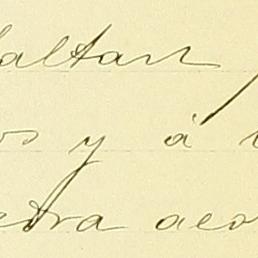 faltan
os y á
etra aco